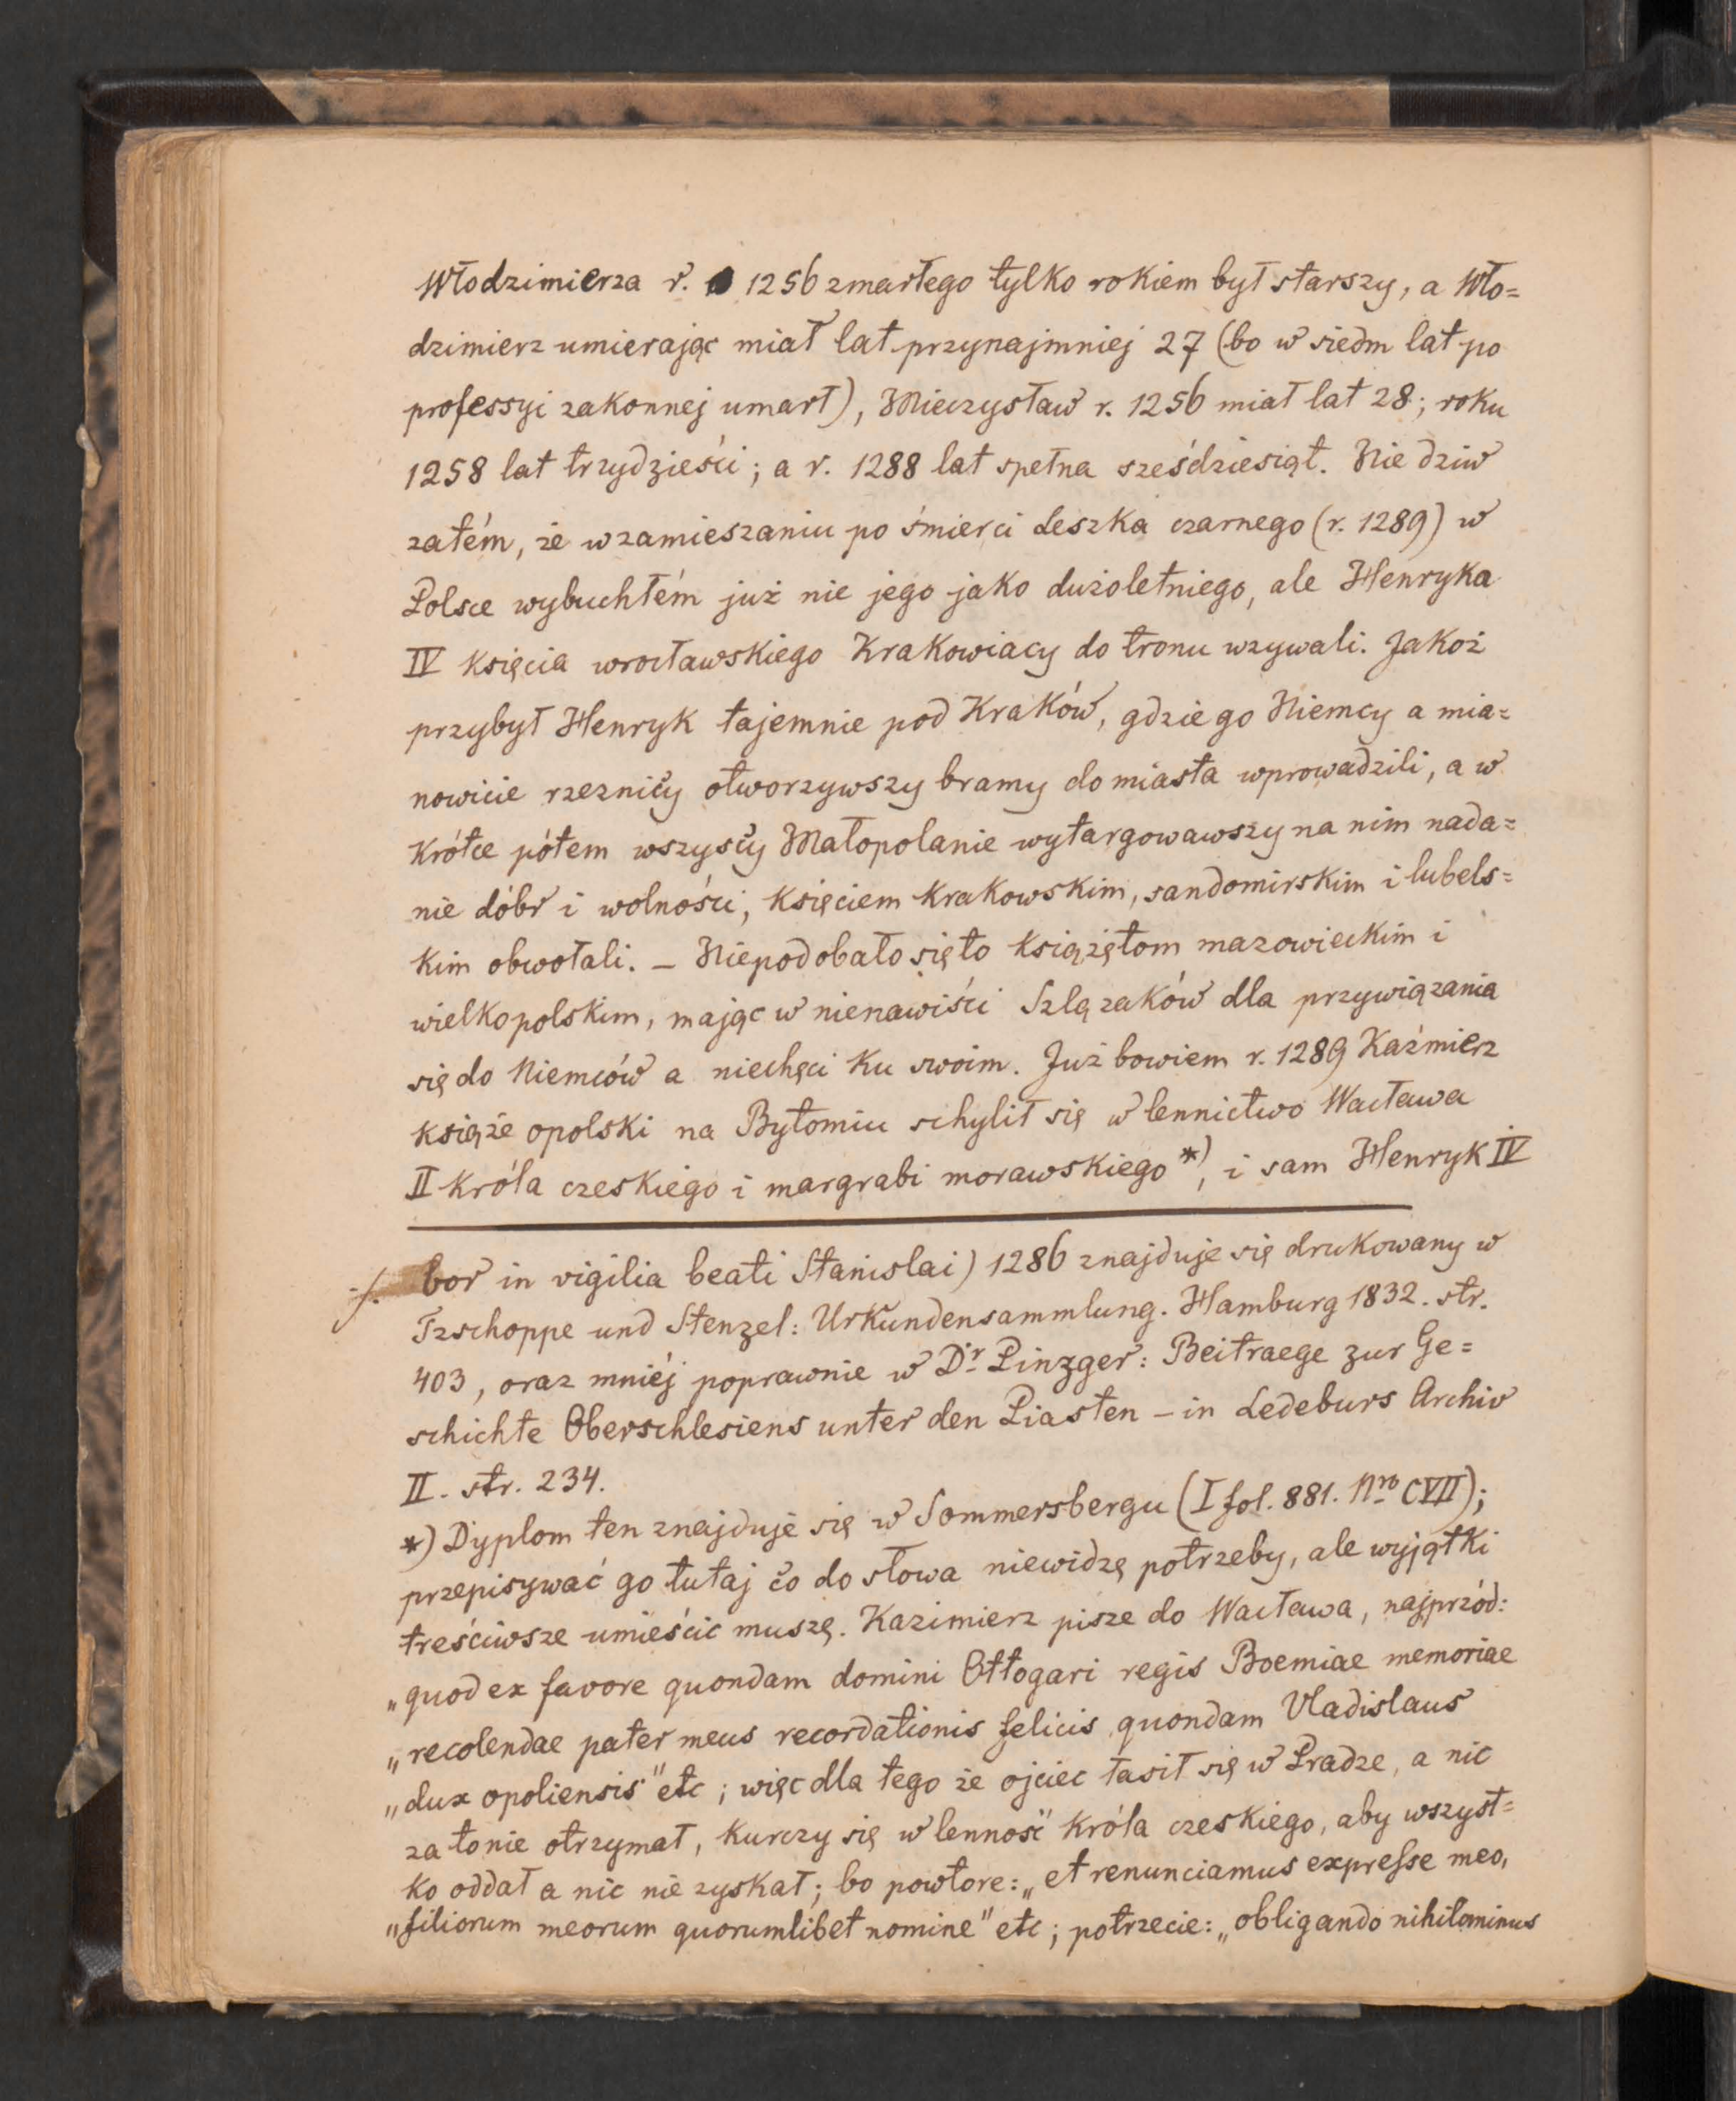 Włodzimierza r. 1256 zmarłego tylko rokiem był starszy, a Wło=
dzimierz umierając miał lat przynajmniej 27 (bo w siedm lat po
professyi zakonnej umarł), Mieczysław r. 1256 miał lat 28; roku
1258 lat trzydzieści; a r. 1288 lat spełna sześdziesiąt. Nie dziw
zatém, że w zamieszaniu po śmierci Leszka czarnego (r. 1289) w
Polsce wybuchłém już nie jego jako dużoletniego, ale Henryka
IV księcia wrocławskiego Krakowiacy do tronu wzywali. Jakoż
przybył Henryk tajemnie pod Kraków, gdzie go Niemcy a mia=
nowicie rzeznicy otworzywszy bramy do miasta wprowadzili, a w
krótce pótem wszyscy Małopolanie wytargowawszy na nim nada=
nie dóbr i wolności, księciem krakowskim, sandomirskim i lubels=
kim obwołali. – Niepodobało się to książętom mazowieckim i
wielkopolskim, mając w nienawiści Szlązaków dla przywiązania
się do Niemców a niechęci ku swoim. Już bowiem r. 1289 Kaźmierz
książe opolski na Bytomiu schylił się w lennictwo Wacława
II króla czeskiego i margrabi morawskiego *), i sam Henryk IV
./. bor in vigilia beati Stanislai) 1286 znajduje się drukowany w
Tzschoppe und Stenzel: Urkundensammlung. Hamburg 1832. str.
403, oraz mniéj poprawnie w Dr Linzger: Beitraege zur Ge=
schichte Oberschlesiens unter den Piasten – in Ledeburs Archiv
II. str. 234.
*) Dyplom ten znajduje się w Sommersbergu (I fol. 881. Nro CVII);
przepisywać go tutaj co do słowa niewidzę potrzeby, ale wyjątki
treściwsze umieścic muszę. Kazimierz pisze do Wacława, najprzód:
„quod ex favore quondam domini Ottogari regis Boemiae memoriae
„recolendae pater meus recordationis felicis quondam Vladislaus
„dux opoliensis" etc; więc dla tego że ojciec łasił się w Pradze, a nic
za to nie otrzymał, kurczy się w lenność króla czeskiego, aby wszyst=
ko oddał a nic nie zyskał; bo powtore: „et renunciamus expresse meo,
„filiorum meorum quorumlibet nomine" etc; potrzecie: „obligando nihilominus